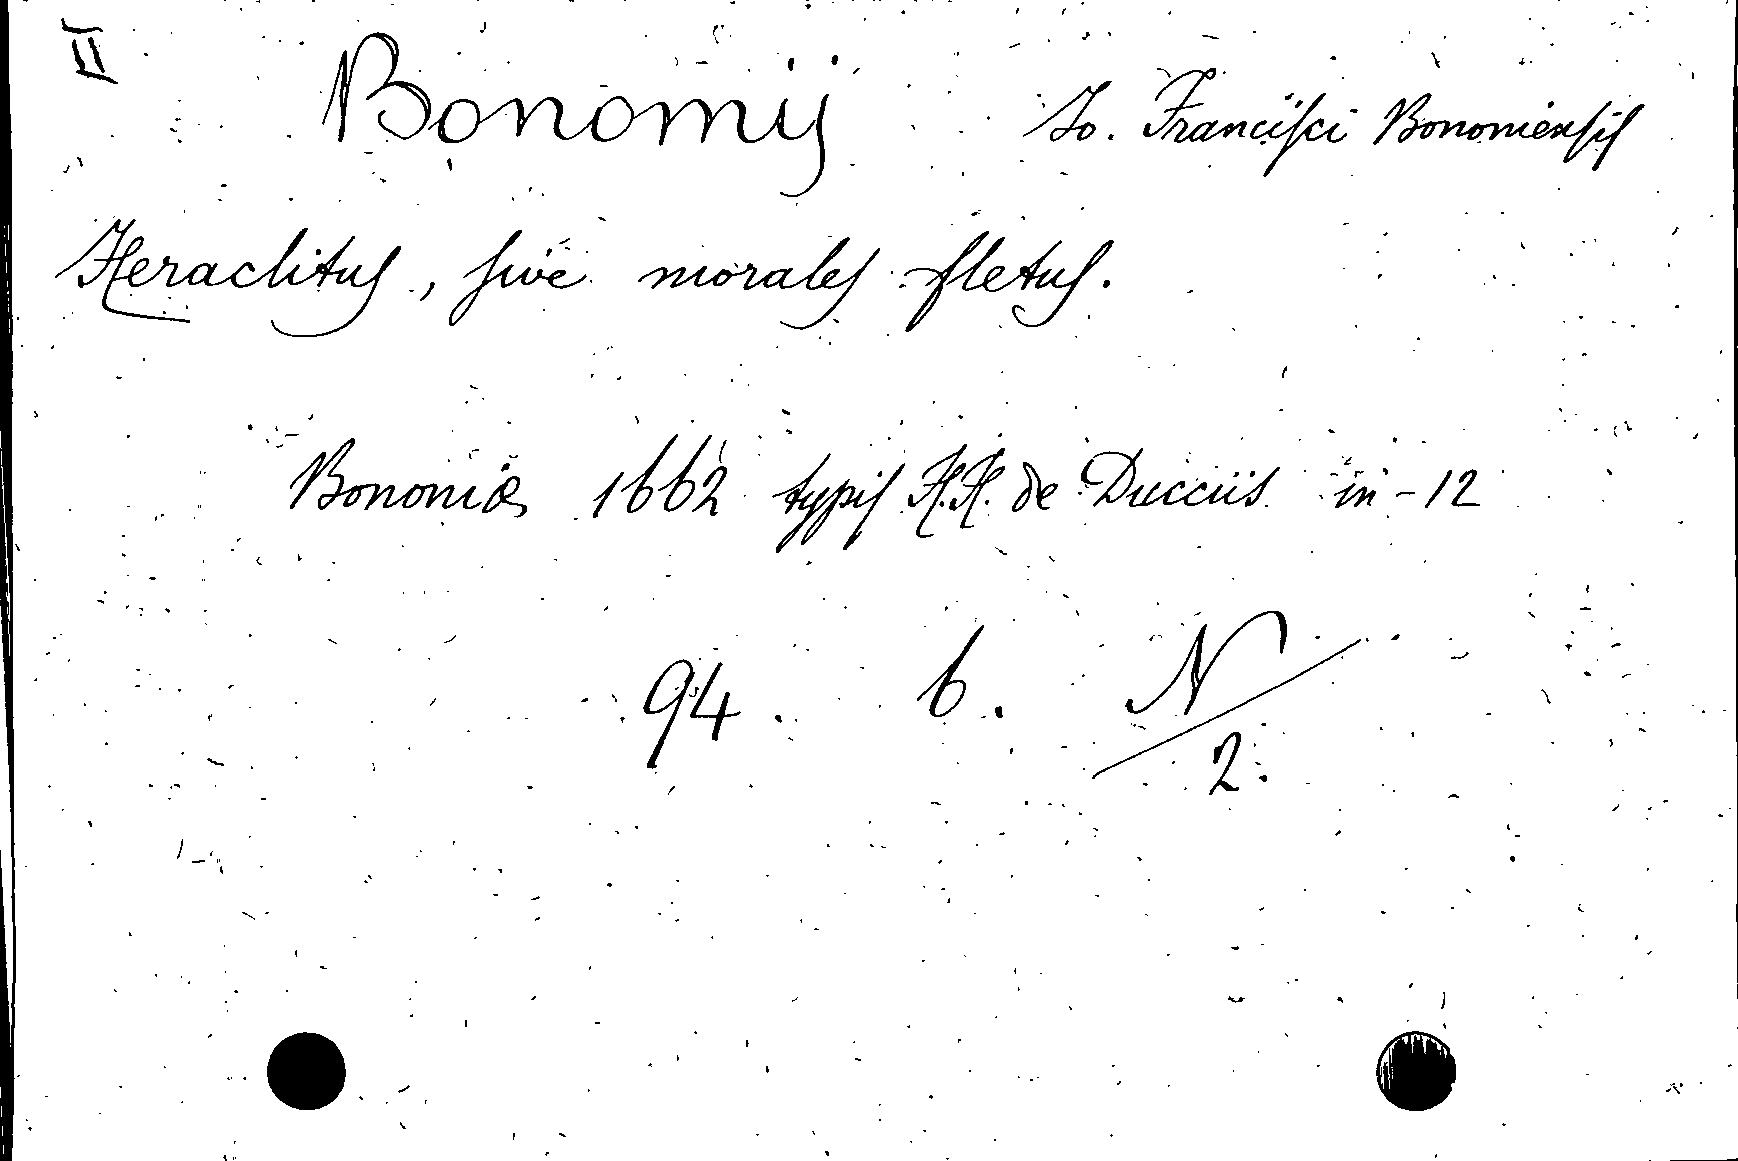 II
Bonomij Jo. Francisci Bononiensis
Heraclitus, sive morales fletus.
Bononiæ 1662 typis H.H. de Ducciis in-12
94. b. N/2.